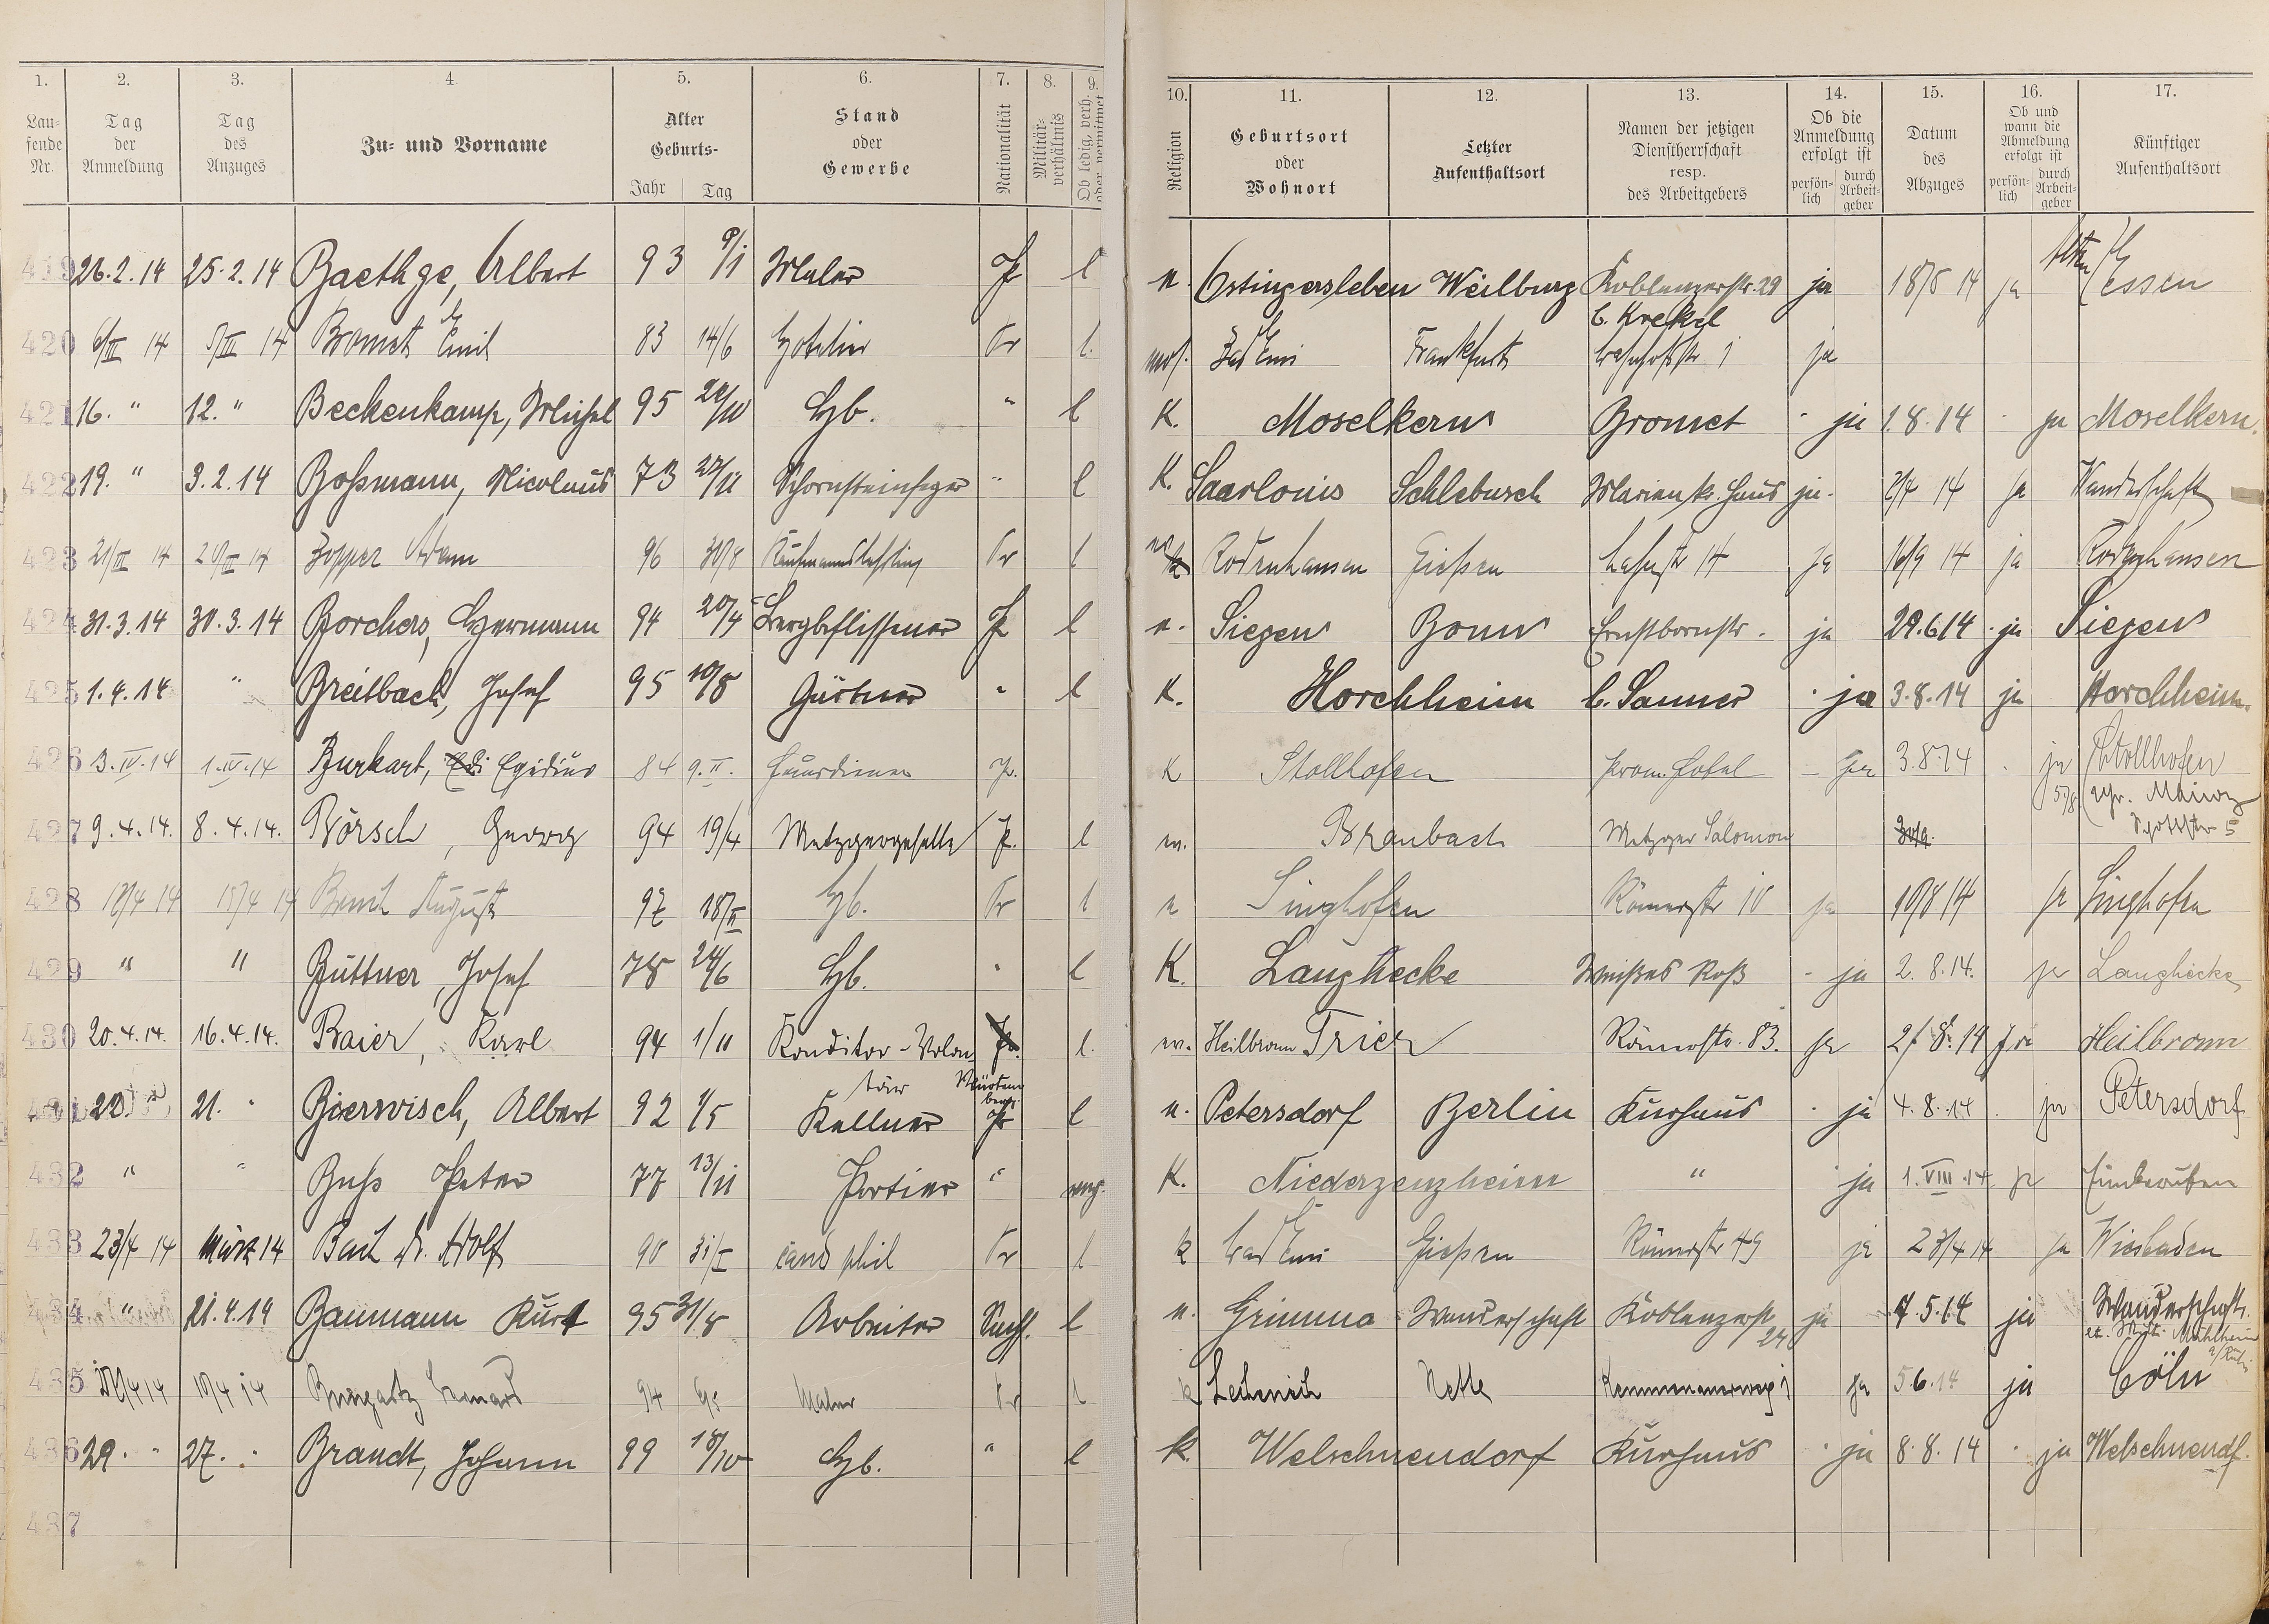 1. 2. 3. 4. 5. 6. 7. 8. 9. 10. 11. 12. 13. 14. 15. 16. 17.
Lau-
fende
Nr.
Tag
der
Anmeldung
Tag
des
Anzuges
Zu- und Vorname
Alter
Geburts-
Jahr Tag
Stand
oder
Gewerbe
Nationalität
Militär-
verhältnis
Ob ledig, verh.
oder verwitwet
Religion
Geburtsort
oder
Wohnort
Letzter
Aufenthaltsort
Namen der jetzigen
Dienstherrschaft
resp.
des Arbeitgebers
Ob die
Anmeldung
erfolgt ist
persön-
lich
durch
Arbeit-
geber
Datum
des
Abzuges
Ob und
wann die
Abmeldung
erfolgt ist
persön-
lich
durch
Arbeit-
geber
Künftiger
Aufenthaltsort
419 26.2.14 25.2.14 Baethge, Albert 93 9/1 Maler P l Ostingersleben Weilburg Koblenzerstr. 29 ja 18/5 14 ja Essen
b. Krekel
420 6/III 14 5/III 14 Bromet Emil 83 14/6 Hotelier Pr l. mos. Bad Ems Frankfurt Bahnhofstr 1 ja
421 16. " 12. " Beckenkamp, Michel 95 Hb. " l K. Moselkern Bromet - ja 1.8.14 - ja Moselkern.
422 19. " 3.2.14 Boßmann, Nicolaus 73 27/11 Schornsteinfeger " l K. Saarlouis Schlebusch Marienkr. Haus ja. 2/4 14 ja Wanderschaft
423 21/III 14 20/III 14 Bopper Adam 96 30/8 Kaufmannslehrling Pr l Rodenhausen Gießen Lahnstr 14 ja 16/9 14 ja Rodenhausen
424 31.3.14 30.3.14 Borchers, Hermann 94 20/4 Bergbeflissener P l Siegen Bonn Ernstbornstr. ja 29.6.14 . ja Siegen
425 1.4.14 " Breitbach, Josef 95 10/8 Gärtner " l K. Horchheim b. Sauner - ja 3.8.14 ja Horchheim.
426 3.IV.14 1.IV.14 Burkart, Egidius 84 9.II. Hausdiener P. K Stollhofen Prom. Hotel - ja 3.8.14 . ja Stollhofen
427 9.4.14. 8.4.14. Börsch, Georg 94 19/4 Metzgergeselle P. l ev. Braubach Metzger Salomon 5/8 Mainz
428 17/4 14 15/4 14 August 97 18/II Hb. Pr l Singhofen Römerstr 10 ja 10/8 14 ja Singhofen
429 " " Büttner, Josef 78 24/6 Hb. " l K. Langhecke Weißes Roß - ja 2.8.14. ja Langhecke
430 20.4.14. 16.4.14. Baier, Karl 94 1/11 Konditor-Volon- l. ev. Heilbronn Trier Römerstr. 83. ja 2/8.14 ja Heilbronn
tär Würtem
berg.
431 22. 21. " Bierwisch, Albert 92 1/5 Kellner P l Petersdorf Berlin Kurhaus - ja 4.8.14 . ja Petersdorf
432 " " Buß Peter 77 13/11 Portier " K. Niederzenzheim " " ja 1.VIII.14 ja Einberufen
433 23/4 14 März 14 Bach Dr. Adolf 90 31/I cand phil Pr l k Bad Ems Gießen Römerstr 49 ja 23/4 14 ja Wiesbaden
434 " 21.4.14 Baumann Kurt 95 31/8 Arbeiter Sachs. l Grimma Wanderschaft Koblenzerst. ja 4.5.14 ja Wanderschaft.
24
435 14 Maler Pr l k Lechenich Nette Kemmenauerweg 1 ja 5.6.14 ja Cöln
436 29. " 27. " Brandt, Johann 99 18/10 Hb. " l k. Welschneudorf Kurhaus - ja 8.8.14 - ja Welschneudf.
437